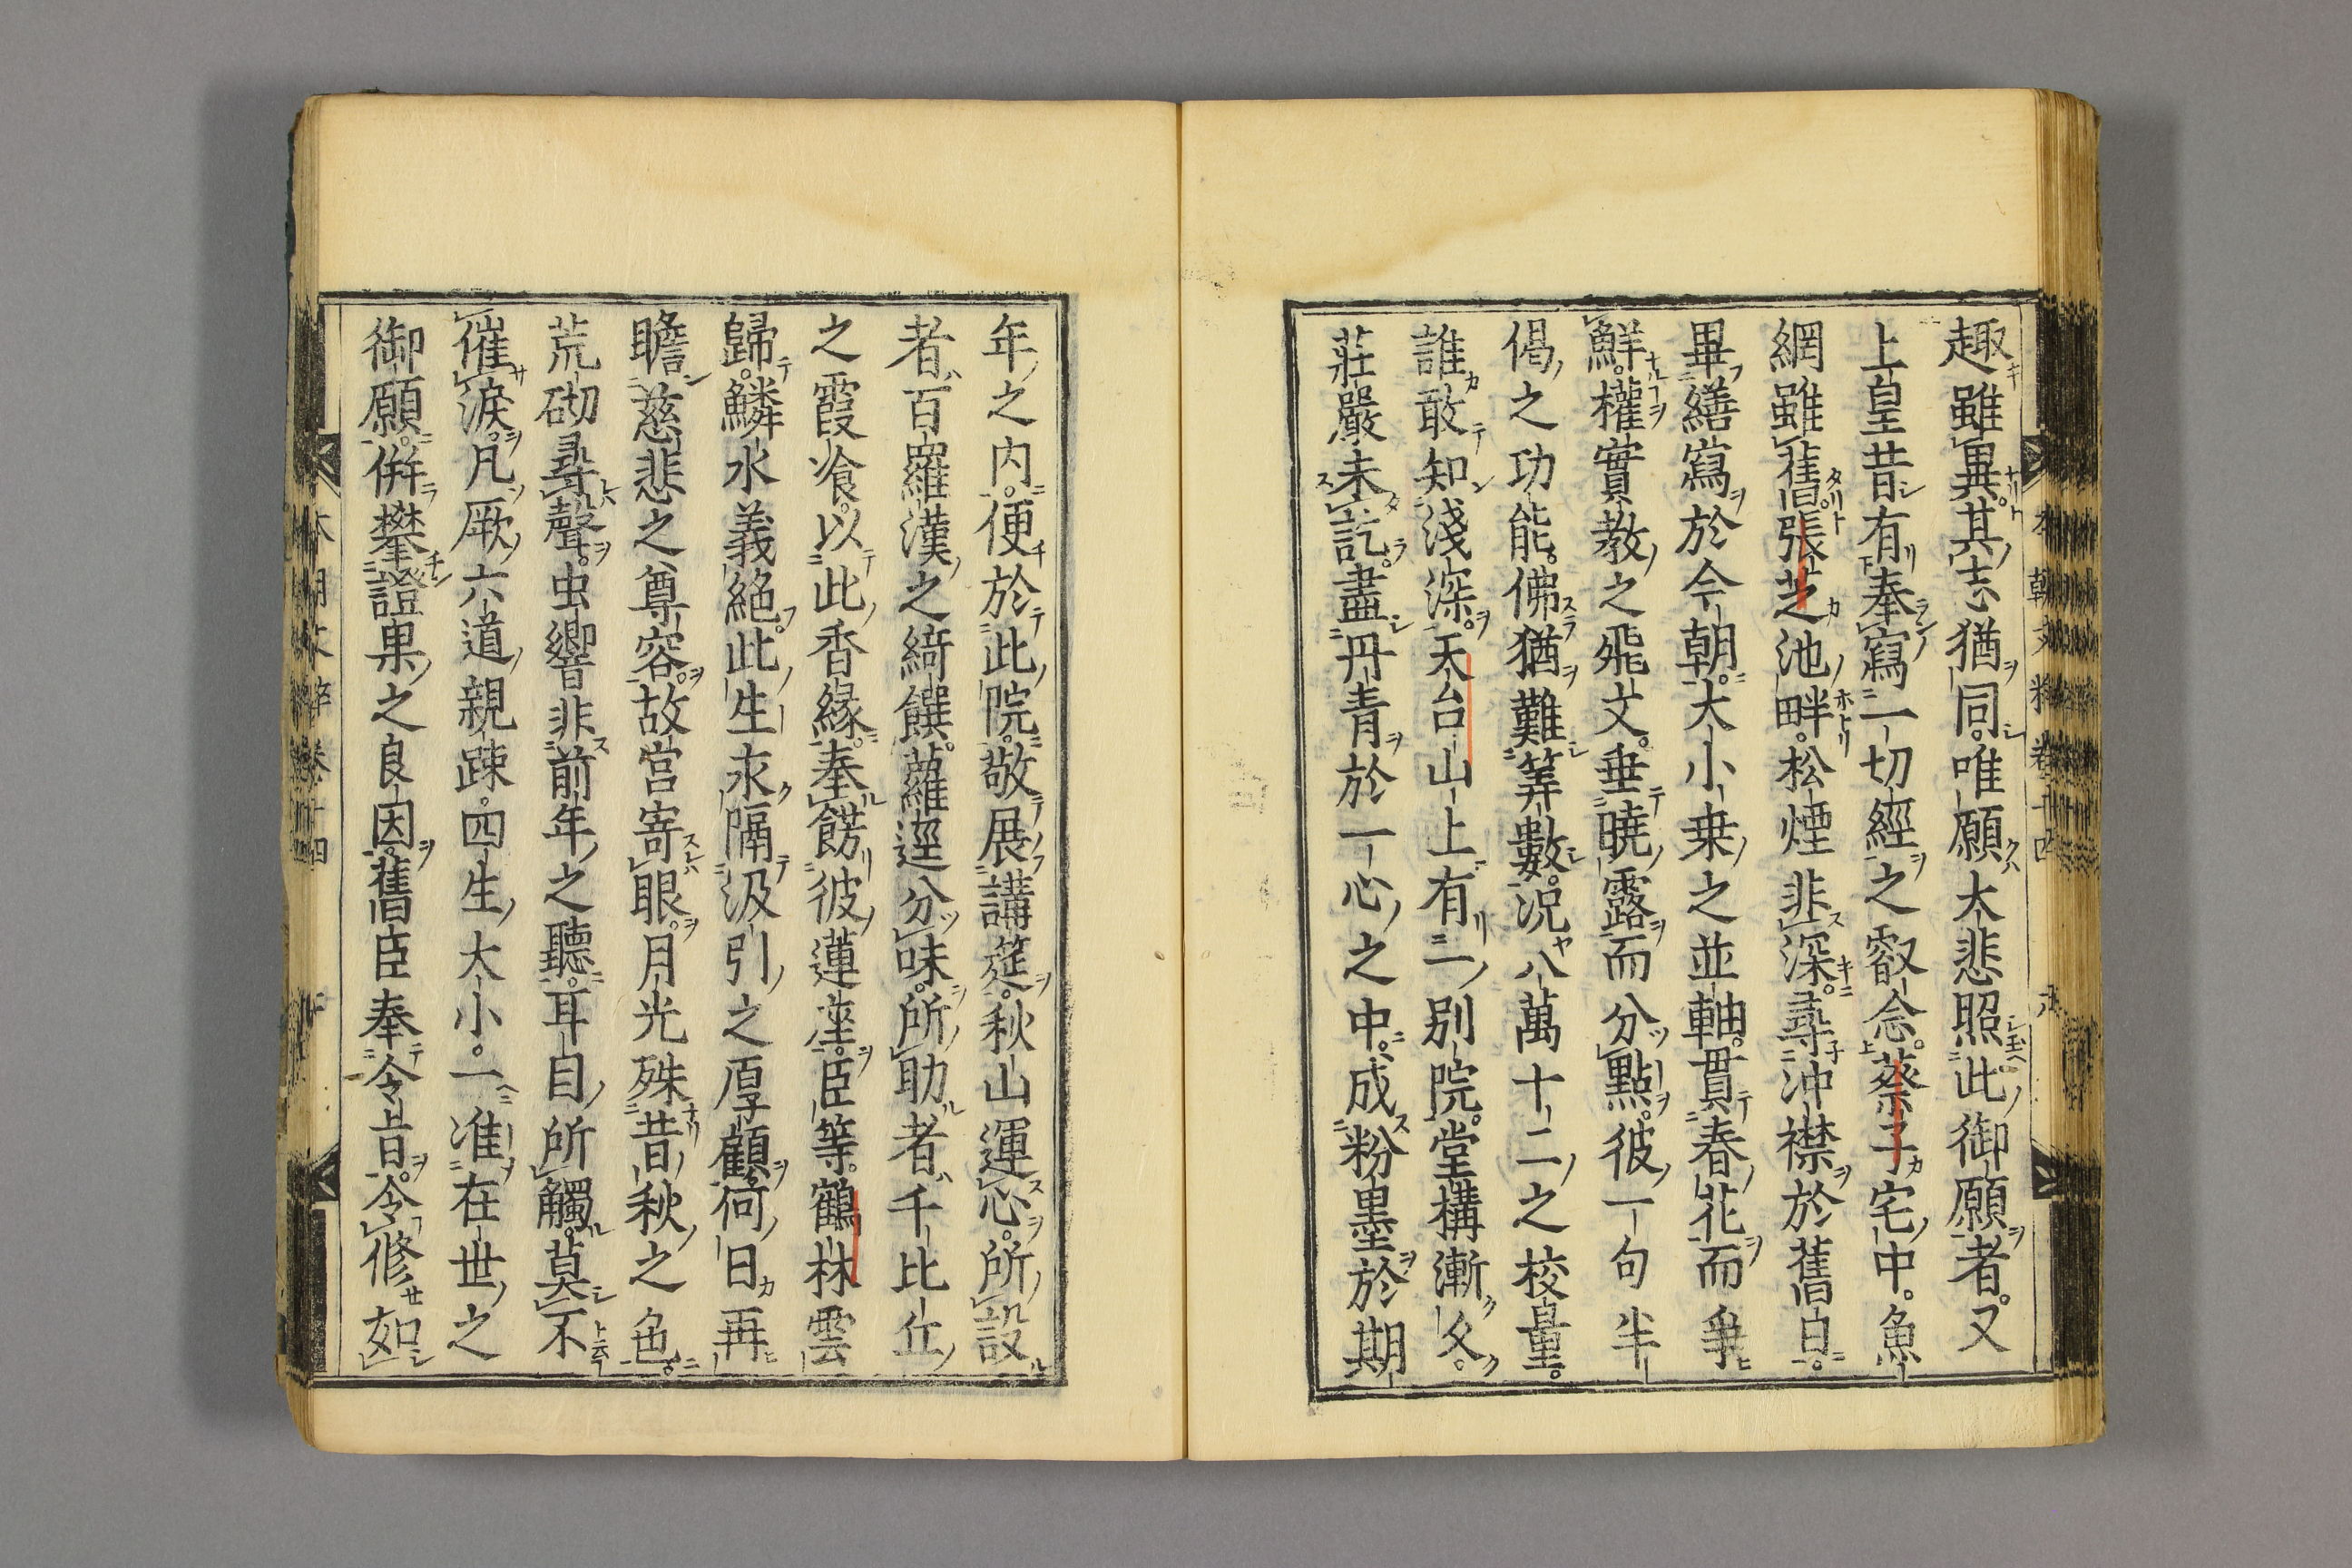 趣雖異其志猶同唯願大悲照此御願者又
上皇昔有奉寫一切經之叡念蔡子宅中魚
網雖舊張芝池畔松煙非深尋沖襟於舊日
畢繕寫於今朝大小乗之並軸貫春花而爭
鮮權實教之飛文垂曉露而分點彼一句半
偈之功能佛猶難筭數況八萬十二之校量
誰敢知淺深天台山上有一別院堂構漸久
莊嚴未訖盡丹青於一心之中成粉墨於期
年之内便於此院敬展講筵秋山運心所設
者百羅漢之綺饌蘿逕分味所助者千比丘
之霞飡以此香緣奉餝彼蓮座臣等鶴林雲
歸鱗水義絶此生永隔汲引之厚顧何日再
瞻慈悲之尊容故宮寄眼月光殊昔秋之色
荒砌尋聲虫響非前年之聽耳目所觸莫不
催淚凡厥六道親疎四生大小一准在世之
御願併攀證果之良因舊臣奉令旨令修如